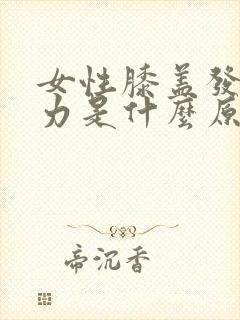 女性膝盖發
力是什麼原
帝沉香